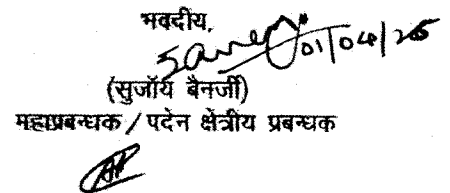 भवदीय,
01/04/25
(सुजॉय बैनर्जी)
महाप्रबन्धक / पदेन क्षेत्रीय प्रबन्धक